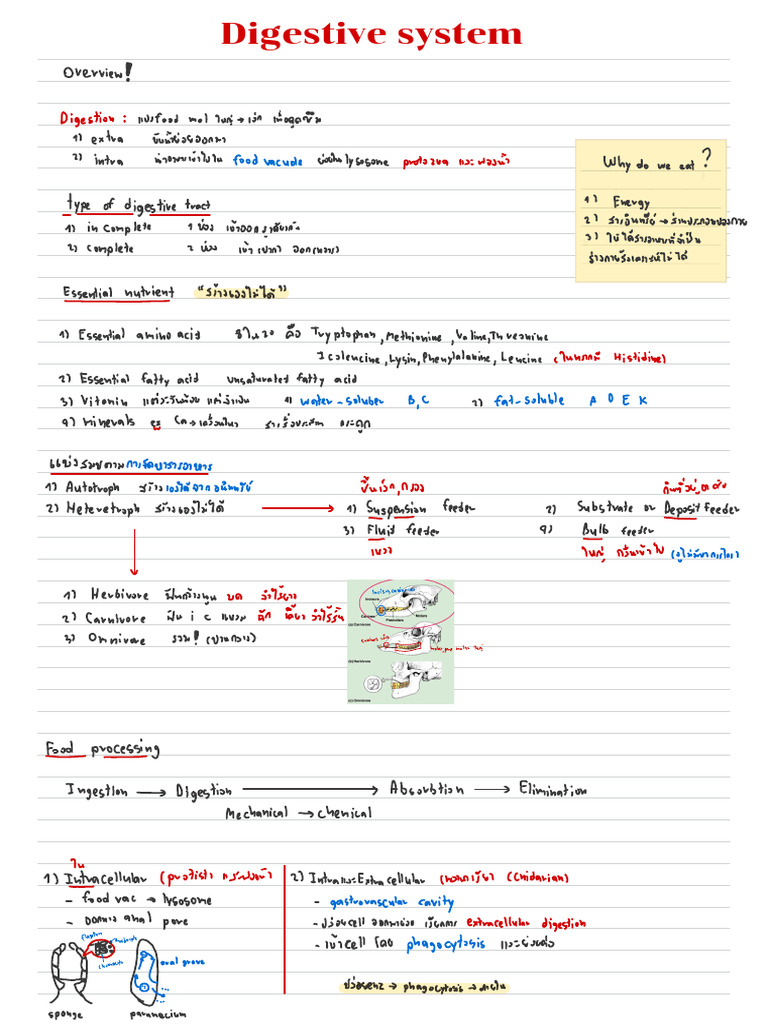 Digestive system
Overview!
Digestion : แปรfood mol ใหญ่ → เล็ก เพื่อดูดซึม
1) extra ขับน้ำย่อยออกมา
2) intra นำอาหารเข้าไปใน food vacuole ย่อยใน lysosome protozoa และฟองน้ำ
Why do we eat ?
1) Energy
2) สารอินทรีย์ → ร่างกาย
3) ใช้ได้สารอาหารที่จำเป็น
ร่างกายสังเคราะห์ไม่ได้
type of digestive tract
1) in complete 1 ช่อง เข้าออกรูเดียวกัน
2) complete 2 ช่อง เข้า (ปาก) ออก (ทวาร)
Essential nutrient "สร้างเองไม่ได้"
1) Essential amino acid 8 ใน 20 คือ Tryptophan, Methionine, Valine, Threonine
Isoleucine, Lysin, Phenylalanine, Leucine (ในทารกมี Histidine)
2) Essential fatty acid unsaturated fatty acid
3) Vitamin แต่ละวันน้อย แต่จำเป็น 1) water-soluber B, C 2) fat-soluble A D E K
4) minerals ex Ca → เคลื่อนไหว กระดูก
แบ่งตามการจัดหาสารอาหาร
1) Autotroph สร้างเองได้จากอนินทรีย์
2) Heterotroph สร้างเองไม่ได้
ชิ้นเล็ก, กรอง
1) Suspension feeder
2) Substrate or Deposit feeder
3) Fluid feeder
4) Bulb feeder
เหลว
ใหญ่ กลืนเข้าไป
1) Herbivore บด
2) Carnivore ฟัน i c แหลม ฉีก
3) Omnivore รวม!
Incisors
Canines
Premolars
Molars
(a) Carnivore
(b) Herbivore
(c) Omnivore
Food processing
Ingestion → Digestion → Absorbtion → Elimination
Mechanical → chemical
ใน
1) Intracellular (protist และฟองน้ำ)
- food vac → lysosome
- ออกทาง anal pore
oral grove
sponge
paramecium
2) Intraและ Extracellular (Chidarian)
- gastrovascular cavity
- ปล่อย cell ออกมาย่อย เรียกการ extracellular digestion
- เข้าcell โดย phagocytosis และย่อยต่อ
ปล่อยenz → phagocytosis → ภายใน